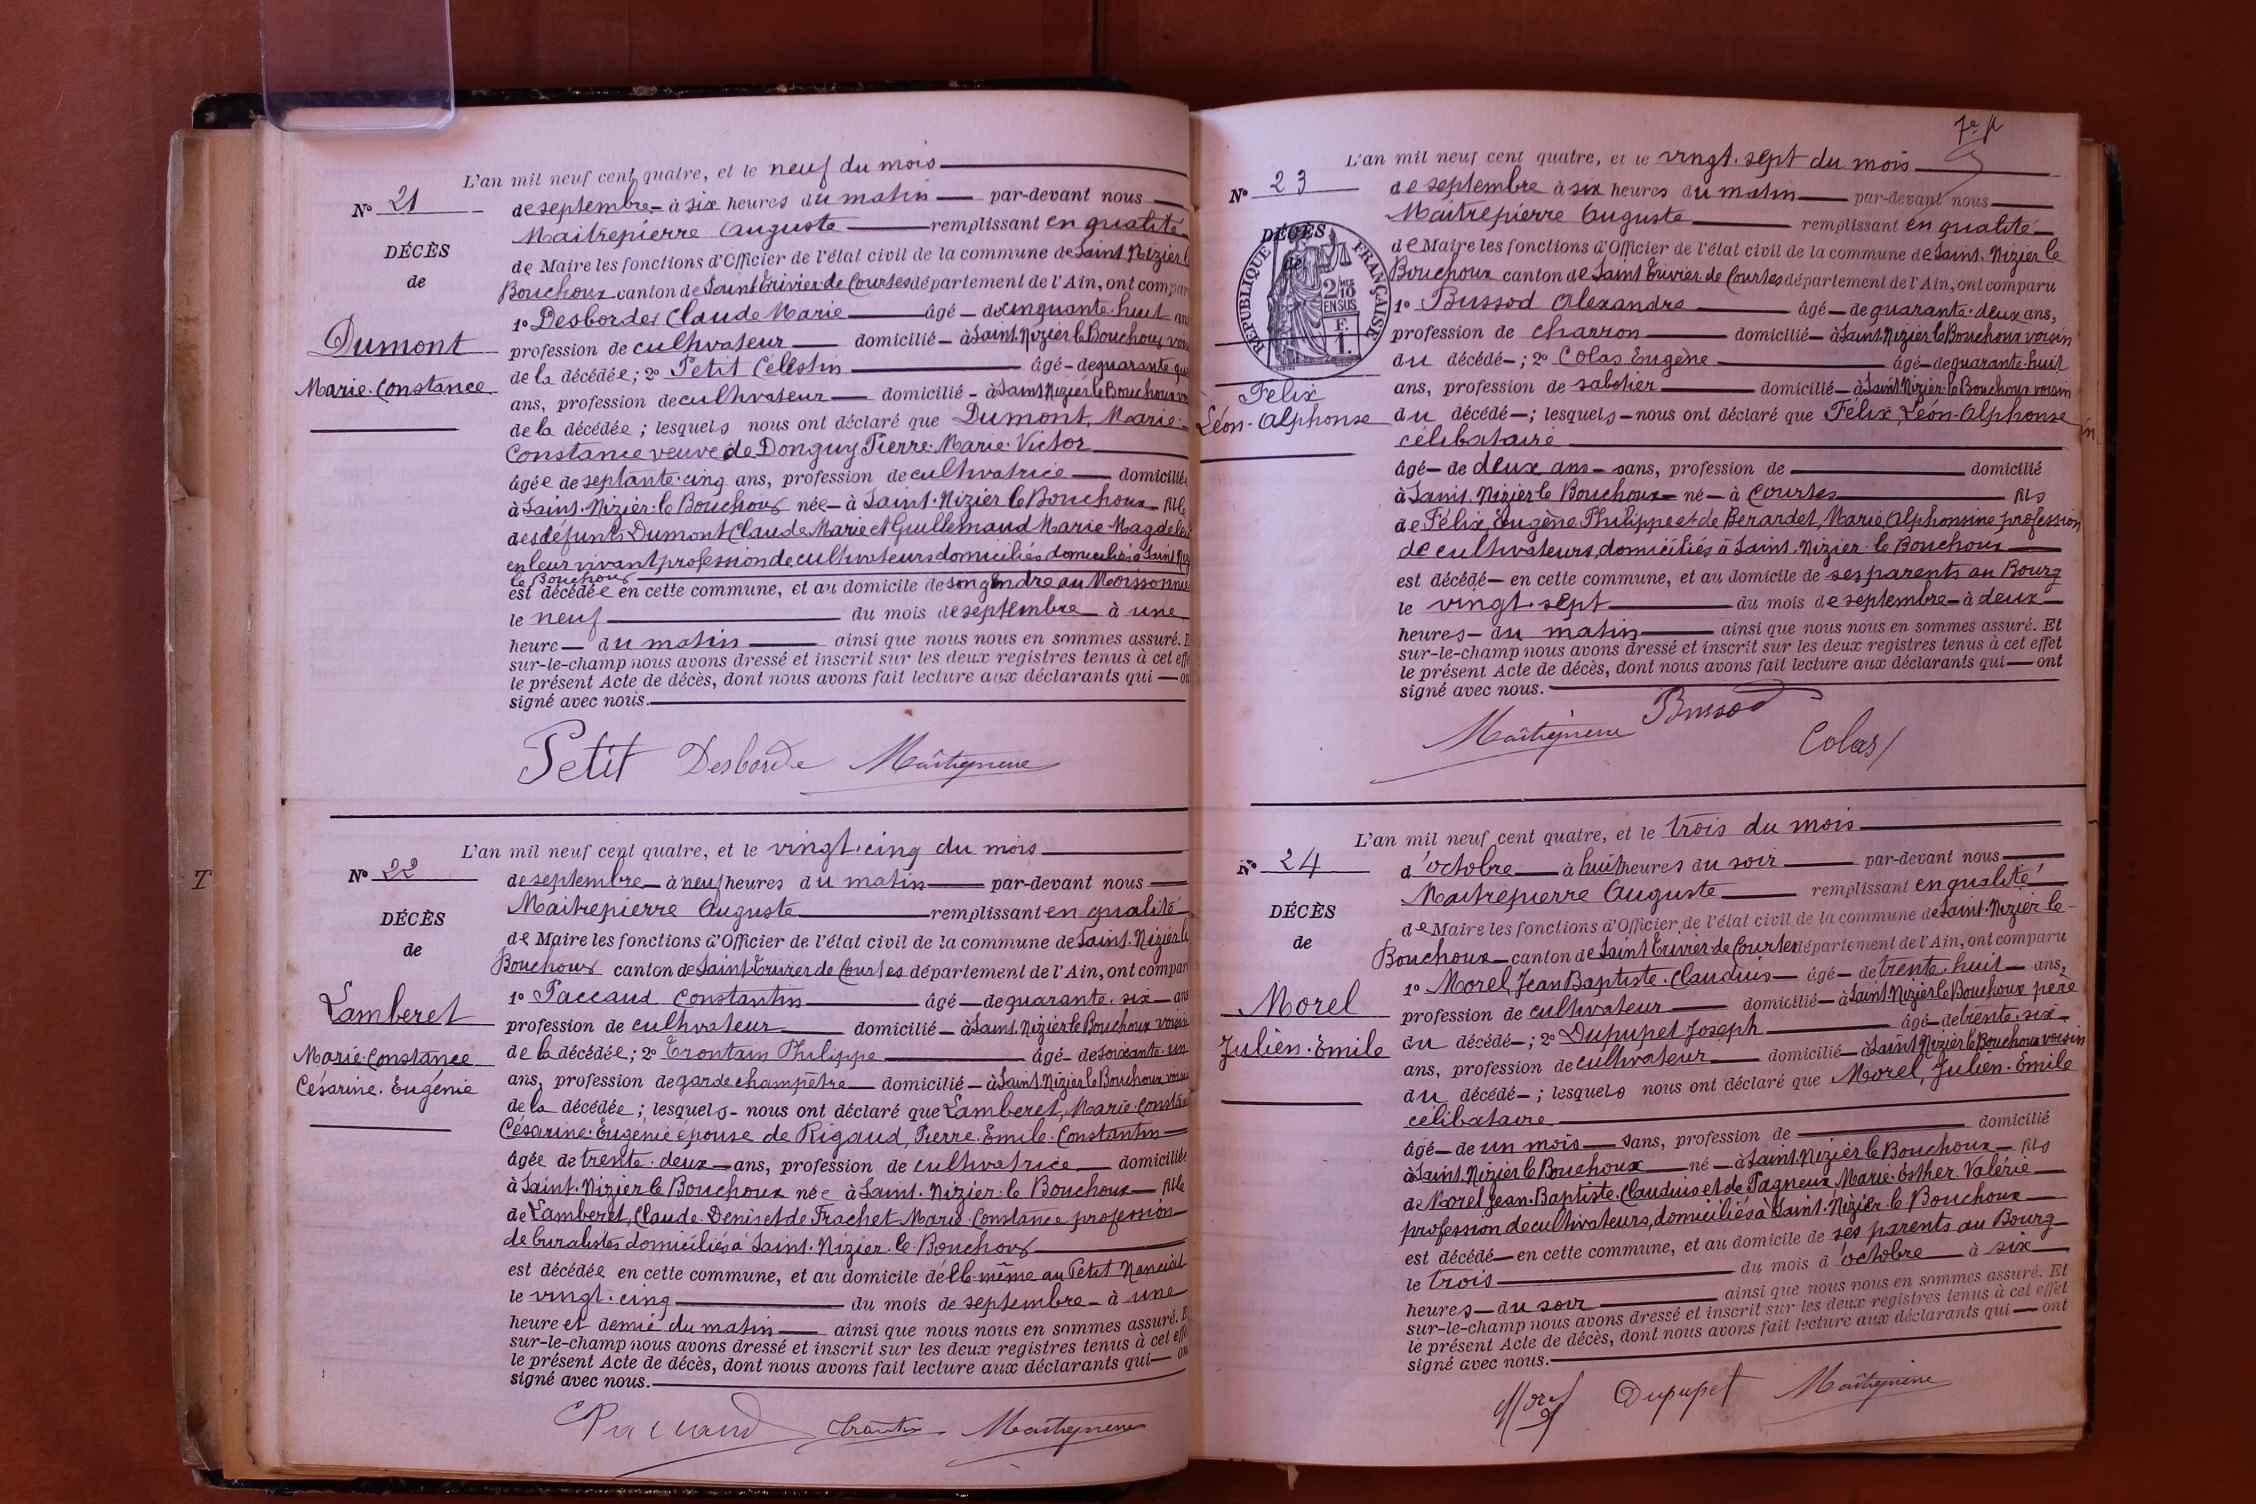 L'an mil neuf cent quatre, et le neuf du mois
N° 21
de septembre à six heures du matin par-devant nous
Maitrepierre Auguste remplissant en qualité
DÉCÈS
de Maire les fonctions d'Officier de l'état civil de la commune de Saint Nizier le
de
Bouchoux canton de Saint Trivier de Courtes département de l'Ain, ont compar
1° Desbordes Claude Marie âgé de cinquante-huit ans
Dumont
profession de cultivateur domicilié à Saint Nizier le Bouchoux
de la décédée; 2° Petit Célestin âgé de quarante
Marie-Constance
ans, profession de cultivateur domicilié à Saint Nizier le Bouchoux
de la décédée; lesquels nous ont déclaré que Dumont, Marie-
Constance veuve de Donguy Pierre-Marie-Victor
âgée de septante-cinq ans, profession de cultivatrice domiciliée
à Saint-Nizier-le Bouchoux née à Saint-Nizier le Bouchoux fille
des défunts Dumont Claude Marie et Guillemaud Marie
en leur vivant profession de cultivateurs domiciliés domiciliés à Saint
le Bouchoux
est décédée en cette commune, et au domicile de son gendre au
le neuf du mois de septembre à une
heure du matin ainsi que nous nous en sommes assuré. E
sur-le-champ nous avons dressé et inscrit sur les deux registres tenus à cet effe
le présent Acte de décès, dont nous avons fait lecture aux déclarants qui on
signé avec nous.
Petit Desborde Maitrepierre
L'an mil neuf cent quatre, et le vingt-cinq du mois
N° 22
de septembre à neuf heures du matin par-devant nous
Maitrepierre Auguste remplissant en qualité
DÉCÈS
de Maire les fonctions d'Officier de l'état civil de la commune de Saint-Nizier le
de
Bouchoux canton de Saint Trivier de Courtes département de l'Ain, ont compar
1° Paccaud Constantin âgé de quarante-six ans
Lamberet
profession de cultivateur domicilié à Saint Nizier le Bouchoux voisin
Marie-Constance
de la décédée; 2° Trontain Philippe âgé de soixante-un
Césarine-Eugénie
ans, profession de garde champêtre domicilié à Saint Nizier le Bouchoux voisin
de la décédée; lesquels nous ont déclaré que Lamberet, Marie-Constance
Césarine-Eugénie épouse de Rigaud, Pierre-Emile-Constantin
âgée de trente-deux ans, profession de cultivatrice domiciliée
à Saint-Nizier le Bouchoux née à Saint-Nizier-le Bouchoux fille
de Lamberet, Claude Denis et de Frachet Marie-Constance profession
de buralistes domiciliés à Saint-Nizier-le-Bouchoux
est décédée en cette commune, et au domicile d'elle-même au Petit
le vingt-cinq du mois de septembre à une
heure et demie du matin ainsi que nous nous en sommes assuré. E
sur-le-champ nous avons dressé et inscrit sur les deux registres tenus à cet effe
le présent Acte de décès, dont nous avons fait lecture aux déclarants qui on
signé avec nous.
Paccaud Trontin Maitrepierre
7e
L'an mil neuf cent quatre, et le vingt-sept du mois
N° 23
de septembre à six heures du matin par-devant nous
Maitrepierre Auguste remplissant en qualité
DÉCÈS
de
RÉPUBLIQUE FRANÇAISE
2/10 EN SUS
F. 1.
de Maire les fonctions d'Officier de l'état civil de la commune de Saint-Nizier le
Bouchoux canton de Saint Trivier de Courtes département de l'Ain, ont comparu
1° Bussod Alexandre âgé de quarante-deux ans,
profession de charron domicilié à Saint-Nizier le Bouchoux voisin
du décédé; 2° Colas Eugène âgé de quarante-huit
Félix
ans, profession de sabotier domicilié à Saint Nizier le Bouchoux voisin
Léon-Alphonse
du décédé; lesquels nous ont déclaré que Félix, Léon-Alphonse
célibataire
âgé de deux ans sans, profession de domicilié
à Saint-Nizier le Bouchoux né à Courtes fils
de Félix, Eugène Philippe et de Berardet, Marie Alphonsine profession
de cultivateurs, domiciliés à Saint-Nizier-le Bouchoux
est décédé en cette commune, et au domicile de ses parents au Bourg
le vingt-sept du mois de septembre à deux
heures du matin ainsi que nous nous en sommes assuré. Et
sur-le-champ nous avons dressé et inscrit sur les deux registres tenus à cet effet
le présent Acte de décès, dont nous avons fait lecture aux déclarants qui ont
signé avec nous.
Maitrepierre Bussod Colas
L'an mil neuf cent quatre, et le trois du mois
N° 24
d'octobre à huit heures du soir par-devant nous
Maitrepierre Auguste remplissant en qualité
DÉCÈS
de Maire les fonctions d'Officier de l'état civil de la commune de Saint-Nizier le
de
Bouchoux canton de Saint Trivier de Courtes département de l'Ain, ont comparu
1° Morel, Jean Baptiste-Claudius âgé de trente-huit ans,
Morel
profession de cultivateur domicilié à Saint-Nizier le Bouchoux père
Julien-Emile
du décédé; 2° Dupupet Joseph âgé de trente-six
ans, profession de cultivateur domicilié à Saint Nizier le Bouchoux voisin
du décédé; lesquels nous ont déclaré que Morel, Julien-Emile
célibataire
âgé de un mois sans, profession de domicilié
à Saint Nizier le Bouchoux né à Saint Nizier le Bouchoux fils
de Morel Jean-Baptiste-Claudius et de Pagneux Marie-Esther Valérie
profession de cultivateurs, domiciliés à Saint-Nizier-le Bouchoux
est décédé en cette commune, et au domicile de ses parents au Bourg
le trois du mois d'octobre à six
heures du soir ainsi que nous nous en sommes assuré. Et
sur-le-champ nous avons dressé et inscrit sur les deux registres tenus à cet effet
le présent Acte de décès, dont nous avons fait lecture aux déclarants qui ont
signé avec nous.
Morel Dupupet Maitrepierre